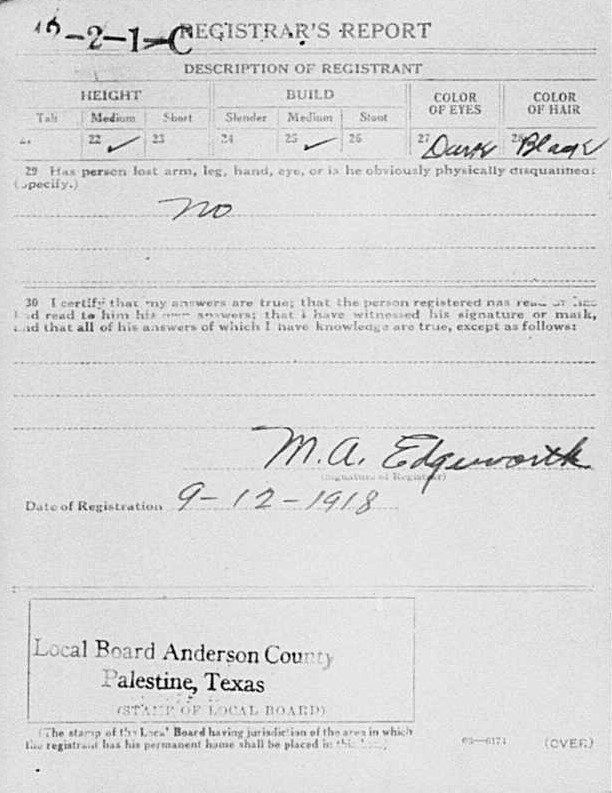 -2-1-C REGISTRAR'S REPORT
DESCRIPTION OF REGISTRANT
HEIGHT BUILD COLOR OF EYES COLOR OF HAIR
Tall Medium Short Slender Medium Stout
22 ✓ 23 24 25 ✓ 26 27 Dark 28 Black
29 Has person lost arm, leg, hand, eye, or is he obviously physically disqualified?
(Specify.)
No
30 I certify that my answers are true; that the person registered has read or has
had read to him his own answers; that I have witnessed his signature or mark,
and that all of his answers of which I have knowledge are true, except as follows:
M.A. Edgeworth
(Signature of Registrar)
Date of Registration 9-12-1918
Local Board Anderson County
Palestine, Texas
(STAMP OF LOCAL BOARD)
(The stamp of the Local Board having jurisdiction of the area in which
the registrant has his permanent home shall be placed in this
63—6171 (OVER)